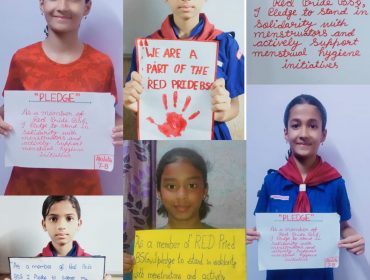 Red Pride BSG,
I pledge to stand in
solidarity with
menstruators and
actively support
menstrual hygiene
initiatives
"WE ARE A
PART OF THE
RED PRIDE BSG
"PLEDGE"
As a member of
Red Pride BSG,
I pledge to stand in
solidarity with
menstruators and
actively support
menstrual hygiene
initiative
7-B
"PLEDGE"
As a member
of Red Pride BSG,
I pledge to stand in
solidarity with
menstruators and
actively support
menstrual hygiene
initiatives
As a member of RED Pried
BSG pledge to stand in solidarity
with menstruators and activity
As a member of Red Pride
BSG I Pledge to